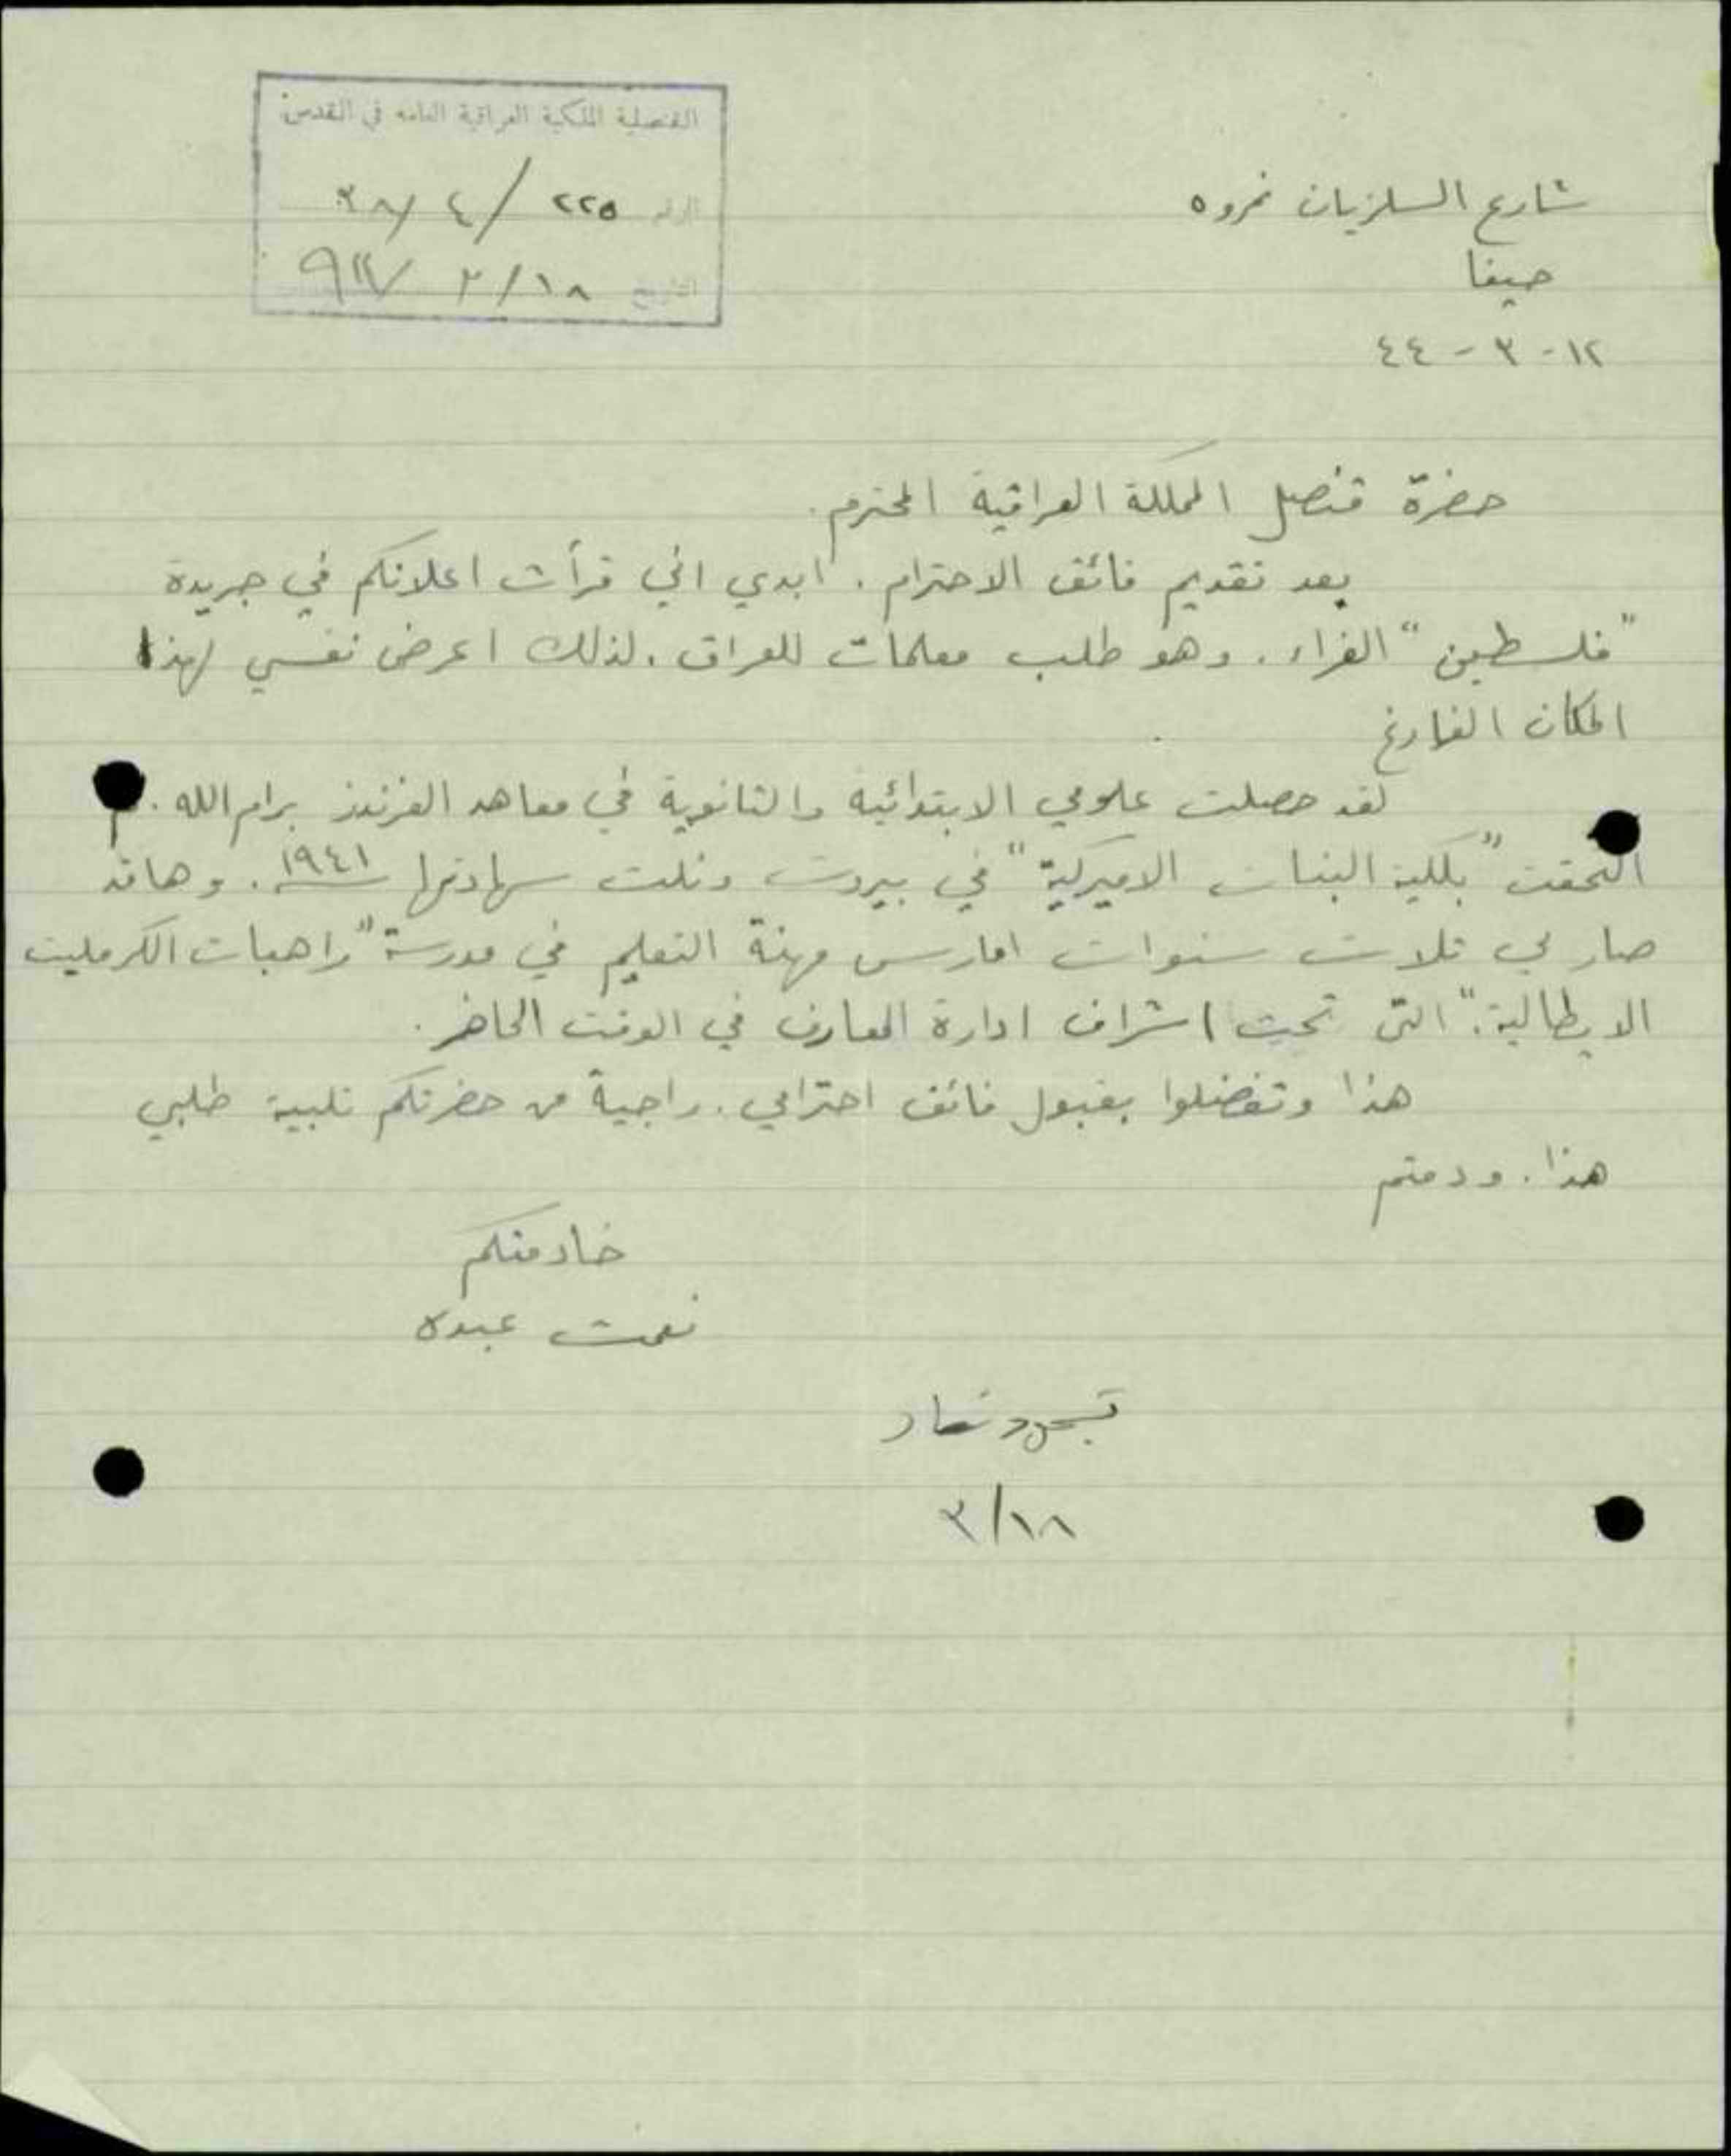 القنصلية الملكية العراقية العامة في القدس
الرقم ٢٢٥ / ٤ /
التاريخ ١٨ / ٣
شارع السلزيان نمره ٥
حيفا
١٢ - ٣ - ٤٤
حضرة قنصل المملكة العراقية المحترم.
بعد تقديم فائق الاحترام. ابدي اني قرأت اعلانكم في جريدة
"فلسطين" الغراء. وهو طلب معلمات للعراق. لذلك اعرض نفسي لهذا
المكان الفارغ
لقد حصلت علومي الابتدائية والثانوية في معاهد الفرندز برام الله. ثم
التحقت "بكلية البنات الاميركية" في بيروت ونلت شهادتها ١٩٤١. وهاقد
صار لي ثلاث سنوات امارس مهنة التعليم في مدرسة "راهبات الكرمليت
الايطالية." التي تحت اشراف ادارة المعارف في الوقت الحاضر.
هذا وتفضلوا بقبول فائق احترامي. راجية من حضرتكم تلبية طلبي
هذا. ودمتم
خادمتكم
نعمت عبده
١٨/٣